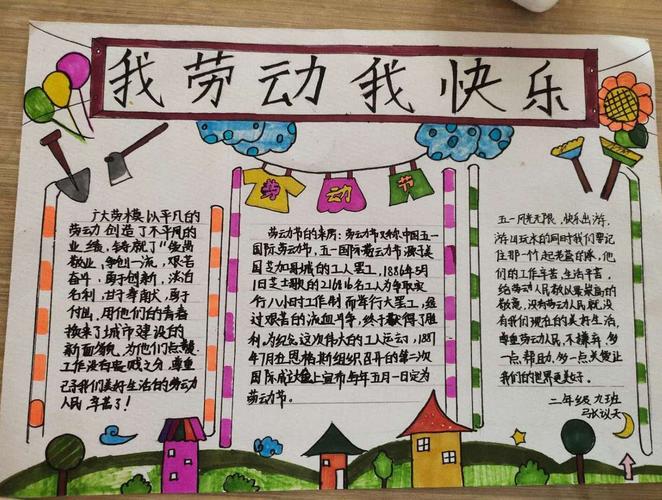 我劳动我快乐
劳
动
节
广大劳模以平凡的
劳动创造了不平凡的
业绩,铸就了"爱岗
敬业,争创一流,艰苦
奋斗,勇于创新,淡泊
名利,甘于奉献",勇于
付出,用他们的青春
换来了城市建设的
新面貌,为他们点赞,
工作没有高贱之分,尊重
己于我们美好生活的劳动
人民 辛苦了!
劳动节的来历:劳动节又称中国五一
国际劳动节,五一国际劳动节源于美
国芝加哥城的工人罢工,1886年5月
1日芝士歌的216816名工人为争取实
行八小时工作制而举行大罢工,经
过艰苦的流血斗争,终于获得了胜
利,为纪念这次伟大的工人运动,1889
年7月在恩格斯组织召开的第二次
国际成立大会上宣布每年五月一日定为
劳动节。
五一风光无限,快乐出游,
游山玩水的同时我们要记
住那一个起老茧的家,他
们的工作辛苦,生活辛苦,
给劳动人民敬以最崇高的
敬意,没有劳动人民,就没
有我们现在的美好生活,
尊重劳动人民,不嫌弃,多
一点帮助,多一点关爱让
我们的世界更美好。
二年级 九班